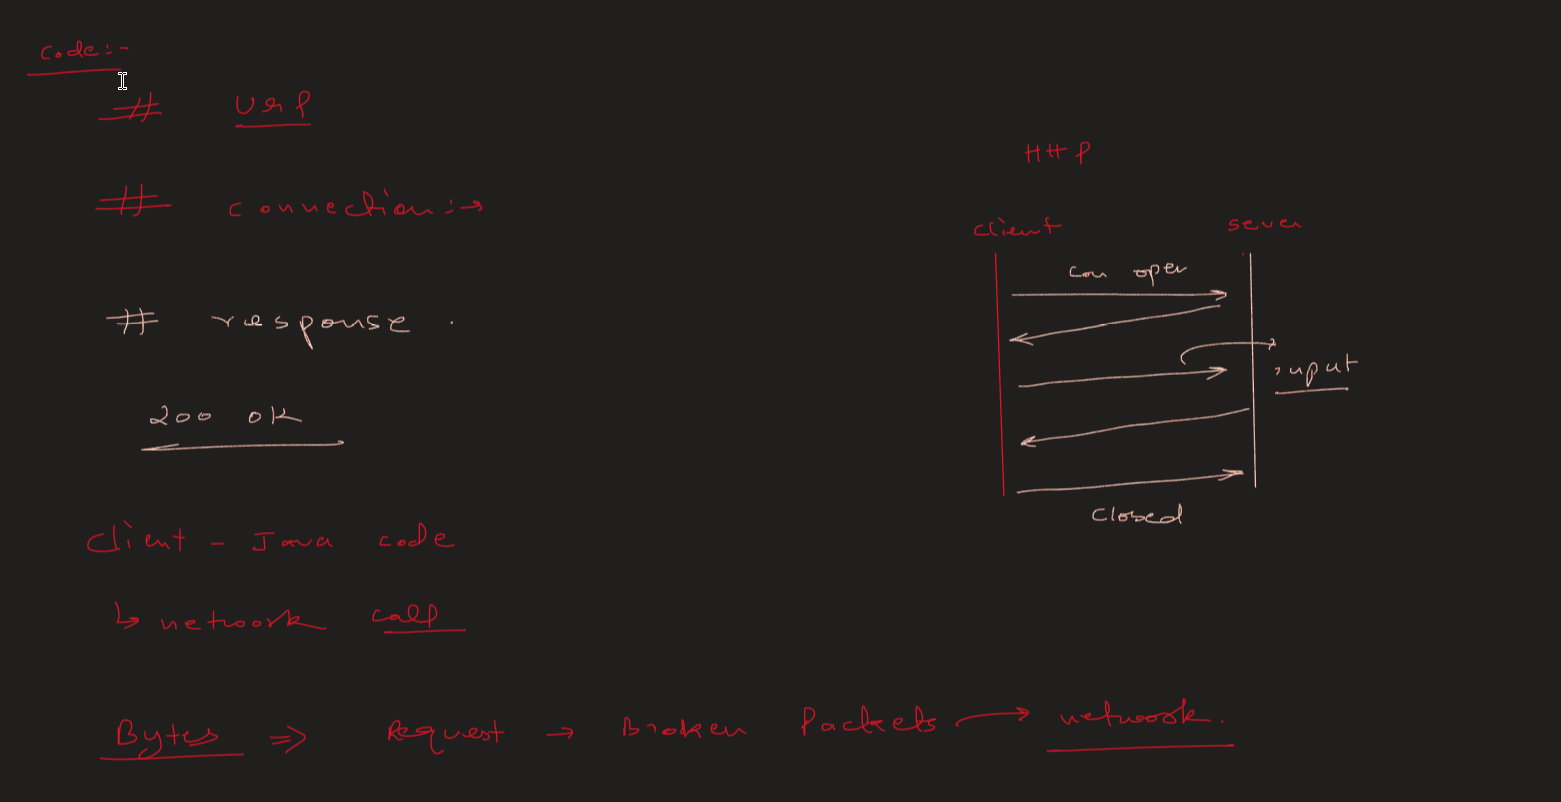 Code:-
# URL
# connection:→
# response.
200 OK
Client - Java code
↳ network call
Bytes ⇒ Request → Broken Packets → network.
HTTP
client server
con open
input
closed